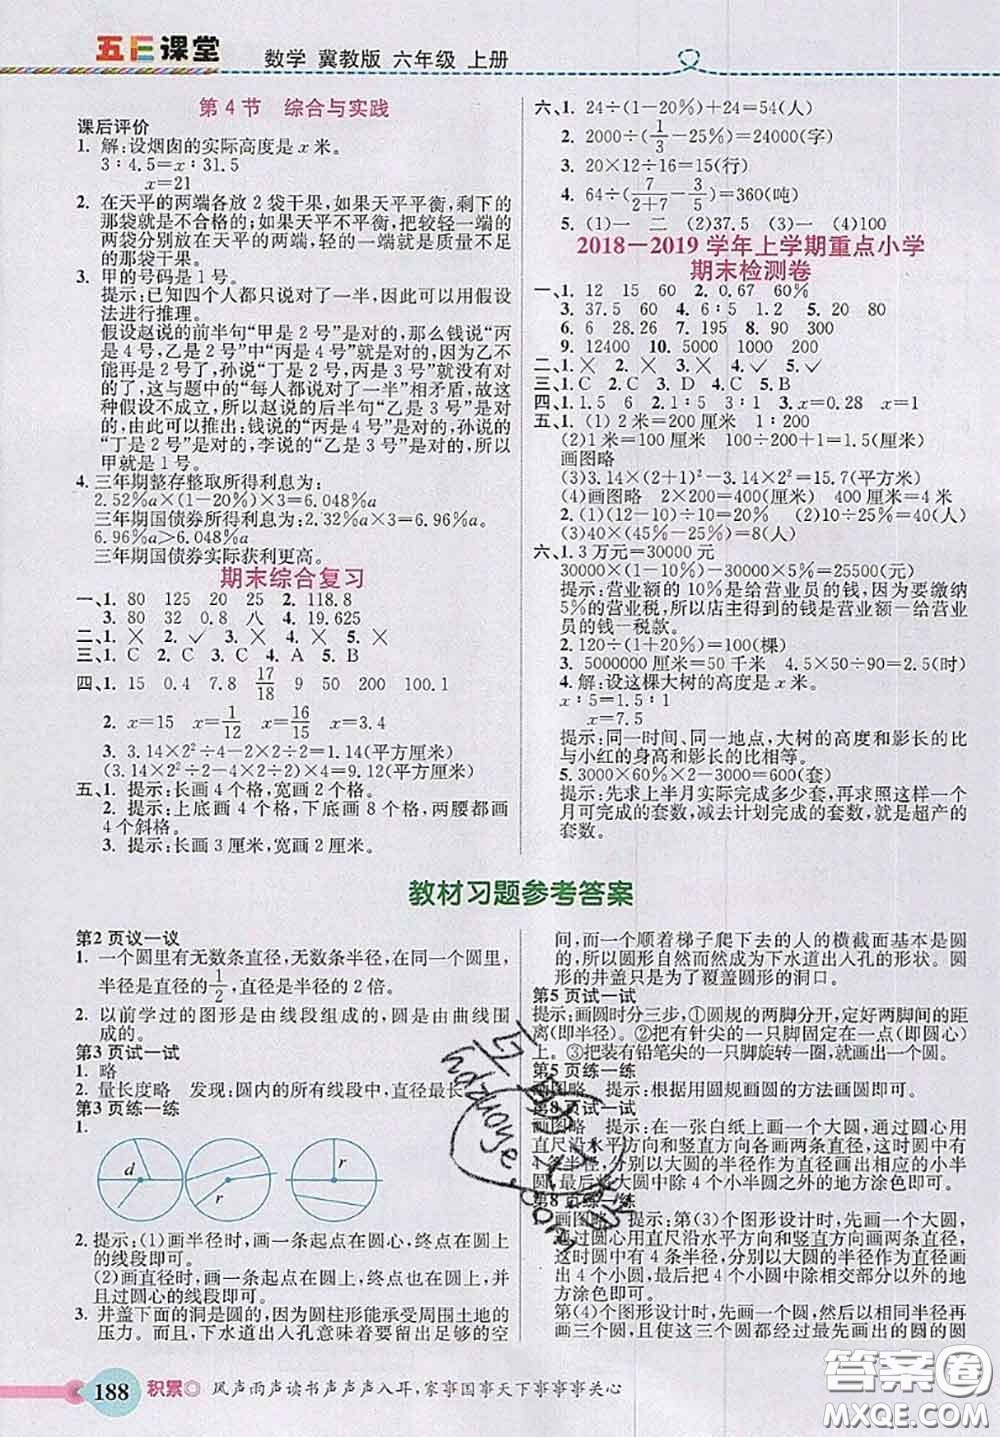 五E课堂 数学 冀教版 六年级 上册
第4节 综合与实践
课后评价
1. 解:设烟囱的实际高度是x米。
3∶4.5=x∶31.5
x=21
2. 在天平的两端各放2袋干果,如果天平平衡,剩下的
那袋就是不合格的;如果天平不平衡,把较轻一端的
两袋分别放在天平的两端,轻的一端就是不合格的
那袋干果。
3. 甲的号码是1号。
提示:已知四个人都只说对了一半,因此可以用假设
法进行推理。
假设赵说的前半句“甲是2号”是对的,那么钱说“丙
是4号,乙是2号”中“丙是4号”就是对的,因为乙不
能再是2号了,孙说“丁是2号,丙是3号”就都错了,
这与题中的“每人都说对了一半”相矛盾,故这
种假设不成立,所以赵说的后半句“乙是3号”是对
的,由此可以推出:钱说的“丙是4号”是对的,孙说的
“丁是2号”是对的,李说的“丁是3号”是错的,所以
甲就是1号。
4. 三年期整存整取所得利息为:
2.52%a×(1-20%)×3=6.048%a
三年期国债券所得利息为:2.32%a×3=6.96%a
6.96%a>6.048%a
三年期国债券实际获利更高。
期末综合复习
一、1. 80 125 20 25 2. 118.8
3. 80 32 0.8 八 4. 19.625
二、1. × 2. ✓ 3. × 4. × 5. ×
三、1. C 2. C 3. C 4. A 5. B
四、1. 15 0.4 7.8 17/18 9 50 200 100.1
2. x=15 x=1/12 x=16/15 x=3.4
3. 3.14×2²÷4-2×2÷2=1.14(平方厘米)
(3.14×2²÷4-2×2÷2)×8=9.12(平方厘米)
五、1. 提示:长画4个格,宽画2个格。
2. 提示:上底画4个格,下底画8个格,两腰都画
4个斜格。
3. 提示:长画3厘米,宽画2厘米。
六、1. 24÷(1-20%)+24=54(人)
2. 2000÷(1/3-25%)=24000(字)
3. 20×12÷16=15(行)
4. 64÷(7/(2+7)-3/5)=360(吨)
5. (1)一 二 (2)37.5 (3)一 (4)100
2018—2019学年上学期重点小学
期末检测卷
一、1. 12 15 60 2. 0.67 60%
3. 37.5 60 4. 6∶5 1.2 5. 20 80
6. 6 28.26 7. 195 8. 90 300
9. 12400 10. 5000 1000
二、1. × 2. × 3. × 4. ✓ 5. ✓
三、1. C 2. C 3. D 4. C 5. C
四、1. 1.5 6 2. 1∶5 3∶1 3. x=0.28 x=1
五、1. (1)2米=200厘米 1∶200
(2)1米=100厘米 100÷200×2+1=1.5(厘米)
画图略
(3)3.14×(2+1)²-3.14×2²=15.7(平方厘米)
(4)画图略 2×200=400(厘米) 400厘米=4米
2. (1)(12-10)÷10=20% (2)10÷20%=40(人)
(3)40×(1-35%-45%)=8(人)
六、1. 3万元=30000元
30000×(1-10%)-30000×5%=25500(元)
提示:营业额的10%是给营业员的钱,又要缴纳
5%的营业税,所以店主得到的钱是营业额-给营业
员的钱-税款。
2. 120÷(1+20%)=100(棵)
3. 5000000厘米=50千米 4.5-50÷20=2(时)
4. 解:设这棵大树的高度是x米。
x∶5=1.5∶1
x=7.5
提示:同一时间、同一地点,大树的高度和影长的比
与小红的身高和影长的比相等。
5. 3000×60%×2-3000=600(套)
提示:先求上半月实际完成多少套,再求照这样一个
月可完成的套数,减去计划完成的套数,就是超产的
套数。
教材习题参考答案
第2页议一议
1. 一个圆里有无数条直径,无数条半径,在同一个圆里,
半径是直径的1/2,直径是半径的2倍。
2. 以前学过的图形是由线段组成的,圆是由曲线围
成的。
第3页试一试
1. 略
2. 量长度略 发现:圆内的所有线段中,直径最长
第3页练一练
1.
d r r
2. 提示:(1)画半径时,画一条起点在圆心,终点在圆上
的线段即可。
(2)画直径时,画一条起点在圆上,终点也在圆上,并
且过圆心的线段即可。
3. 井盖下面的洞是圆的,因为圆柱形能承受周围土地的
压力。而且,下水道出入孔意味着要留出足够大的空
间,而一个顺着梯子爬下去的人的横截面基本是圆
的,所以圆形自然而然成为下水道出入孔的形状。圆
形的井盖只是为了覆盖圆形的洞口。
第5页试一试
提示:画圆时分三步,①圆规的两脚分开,定好两脚间的距
离(即半径)。②把有针尖的一只脚固定在一点(即圆心)
上。③把装有铅笔尖的一只脚旋转一圈,就画出一个圆。
第5页练一练
画图略 提示:根据用圆规画圆的方法画圆即可。
第8页试一试
画图略 提示:在一张白纸上画一个大圆,通过圆心用
直尺沿水平方向和竖直方向画两条直径,这时圆中有
4条半径,分别以大圆的半径作为直径画出相应的小半
圆,最后将大圆中除4个小半圆之外的地方涂色即可。
第8页练一练
画图略 提示:第(3)个图形设计时,先画一个大圆,
用直尺沿水平方向和竖直方向画出大圆的两条直径,
这时圆中有4条半径,分别以大圆的半径作为直径画
出4个小圆,最后将4个小圆中除相交部分以外的地
方涂色即可。
第(4)个图形设计时,先画一个圆,然后以相同半径再
画三个圆,只要保证这三个圆都经过最先画出的圆的圆
188 积累◎ 风声雨声读书声声声入耳,家事国事天下事事事关心
答案圈
MXQE.COM